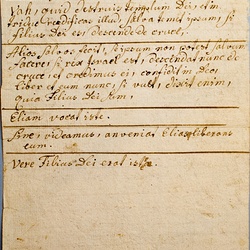 Vah, quid destruis templum Dei, et in
triduo reædificas illud, salva temet ipsum, si
filius Dei es, descende de cruce.
Alios salvos fecit, seipsum non potest salvum
facere, si rex Israel est, descendat nunc de
cruce, et credimus ei, confidit in deo,
liberet eum nunc, si vult, dixit enim,
quia Filius Dei sum.
Eliam vocat iste.
Sine, videamus, an veniat Elias liberans
eum.
Vere Filius Dei erat iste.